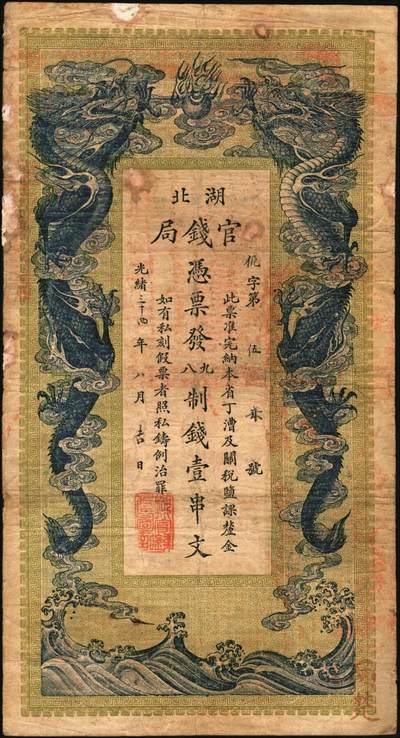 湖北
官錢局
佹字第伍 號
此票准完納本省丁漕及關稅鹽課釐金
憑票發九八制錢壹串文
如有私刻假票者照私鑄例治罪
光緒二十四年八月吉日